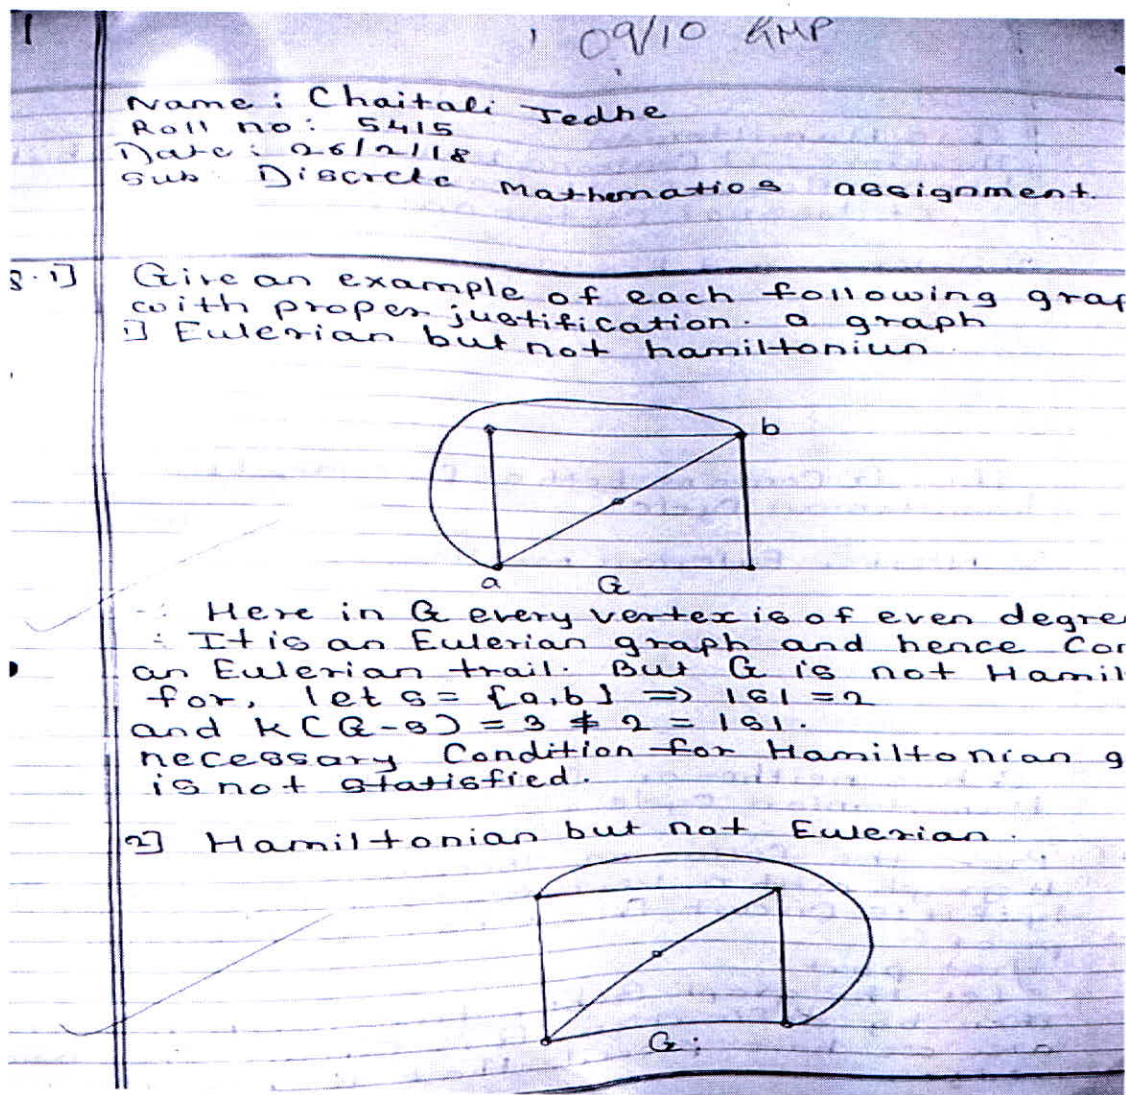 1
09/10 GMP
Name : Chaitali Jedhe
Roll no : 5415
Date : 26/2/18
Sub Discrete Mathematios assignment.
1] Give an example of each following grap
with proper justification. a graph
1] Eulerian but not hamiltoniun
b
a G
∴ Here in G every vertex is of even degre
∴ It is an Eulerian graph and hence Con
an Eulerian trail. But G is not Hamil
for, let s = {a,b} => |s| = 2
and k(G-s) = 3 ≰ 2 = |s|.
necessary Condition for Hamiltonian g
is not statisfied.
2] Hamiltonian but not Eulerian.
G: